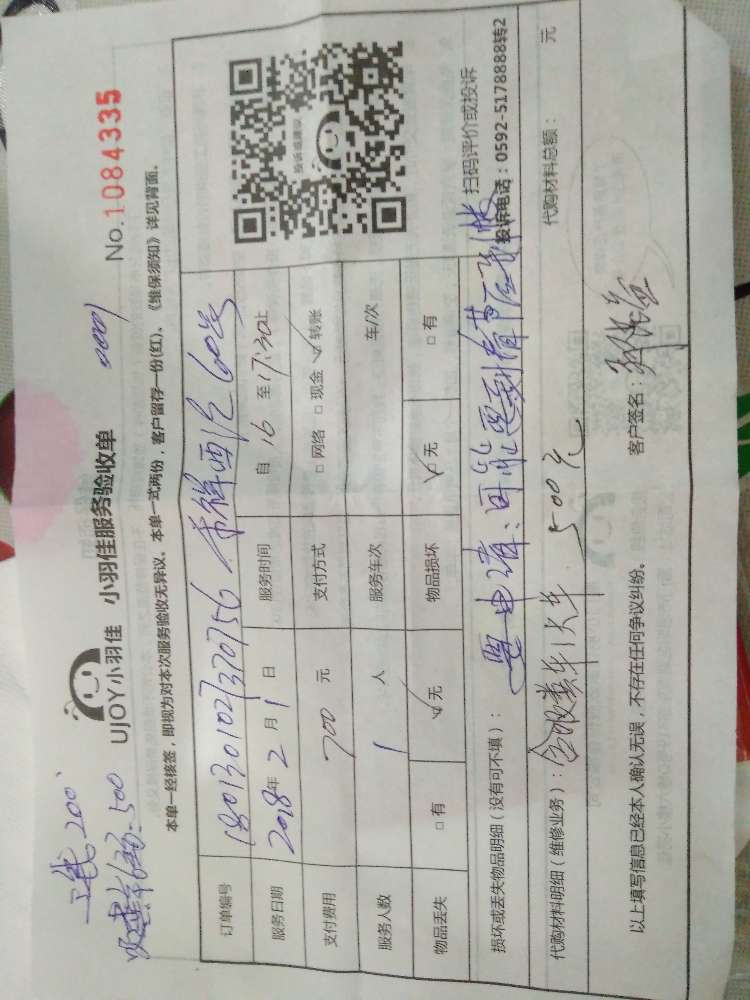 工钱200
吸粪车1台:500
UJOY小羽佳 小羽佳服务验收单
No.1084335
本单一经核签，即视为对本次服务验收无异议。本单一式两份，客户留存一份(红)、《维保须知》详见背面。
订单编号 1801301027370756 60号
服务日期 2018年 2 月 1 日 服务时间 自 16 至 17:30止
支付费用 700 元 支付方式 □网络 □现金 ☑转账
服务人数 1 人 服务车次 车/次
物品丢失 □有 ☑无 物品损坏 ☑无 □有
投诉或建议
扫码评价或投诉
投诉电话：0592-5178888转2
损坏或丢失物品明细（没有可不填）：
代购材料明细（维修业务）：含吸粪车1大车 500元 代购材料总额： 元
以上填写信息已经本人确认无误，不存在任何争议纠纷。 客户签名：